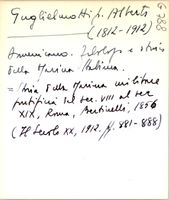 Guglielmotti p. Alberto
(1812-1912)
G 788
Domenicano. Teologo e storico
della Marina Italiana.
= Storia della Marina militare
pontificia dal sec. VIII al sec
XIX, Roma, 1856
(Il Secolo XX, 1912, p. 881-888)